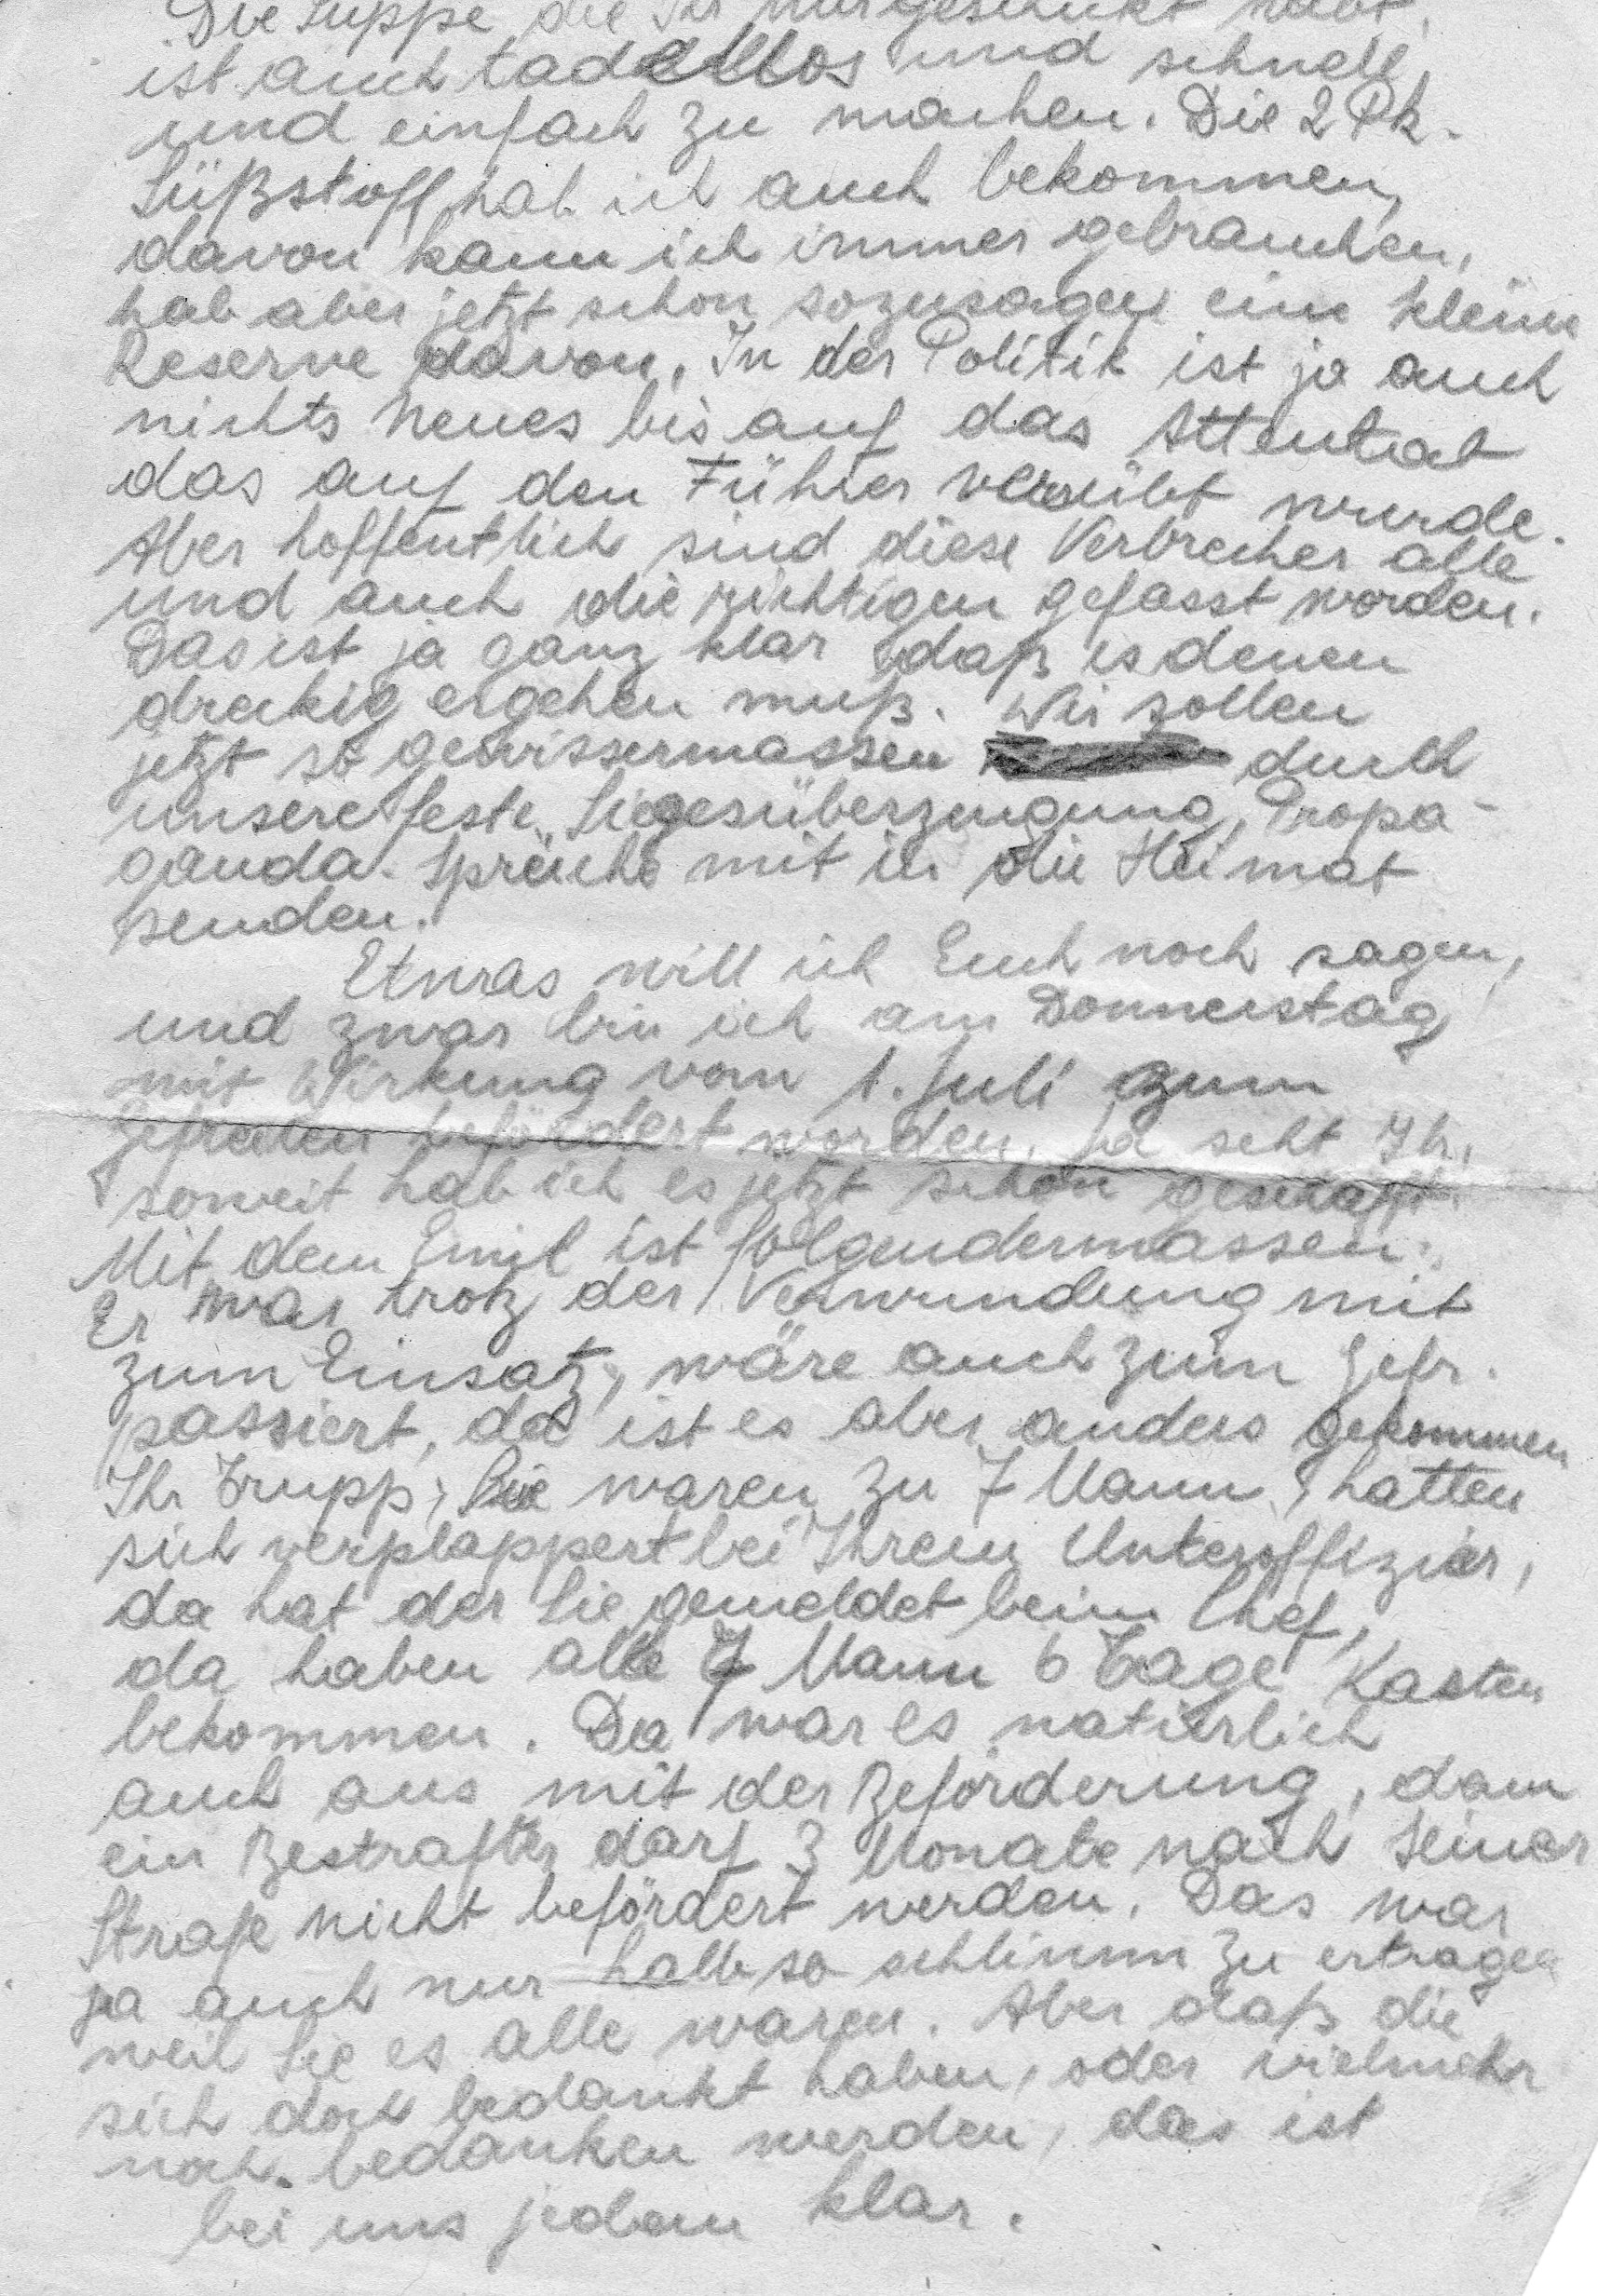 Die Suppe, die Ihr mir geschickt habt,
ist auch tadellos und schnell
und einfach zu machen. Die 2 Pk.
Süßstoff hab ich auch bekommen,
davon kann ich immer gebrauchen,
hab aber jetzt schon sozusagen eine kleine
Reserve davon. In der Politik ist ja auch
nichts Neues bis auf das Attentat
das auf den Führer verübt wurde.
Aber hoffentlich sind diese Verbrecher alle
und auch die richtigen gefasst worden.
Das ist ja ganz klar daß es denen
dreckig ergehen muß. Wir sollen
jetzt so gewissermassen durch
unsere feste Siegesüberzeugung, Propa-
ganda-Sprüche mit in die Heimat
senden.
Etwas will ich Euch noch sagen,
und zwar bin ich am Donnerstag
mit Wirkung vom 1. Juli zum
Gefreiten befördert worden. Ja seht Ihr,
soweit hab ich es jetzt schon geschafft.
Mit dem Emil ist folgendermassen:
Er war trotz der Verwundung mit
zum Einsatz, wäre auch zum Gefr.
passiert, da ist es aber anders gekommen
Ihr Trupp, Sie waren zu 7 Mann, hatten
sich verplappert bei Ihrem Unteroffizier,
da hat der Sie gemeldet beim Chef,
da haben alle 7 Mann 6 Tage Kasten
bekommen. Da war es natürlich
auch aus mit der Beförderung, denn
ein Bestrafter darf 3 Monate nach seiner
Strafe nicht befördert werden. Das war
ja auch nur halb so schlimm zu ertragen
weil Sie es alle waren. Aber daß die
sich doch bedankt haben, oder vielmehr
noch bedanken werden, das ist
bei uns jedem klar.